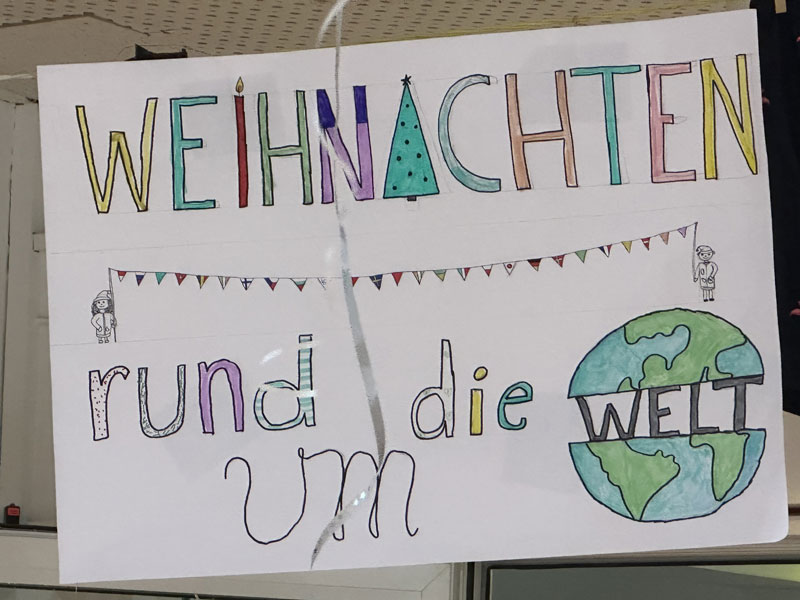 WEIHNACHTEN
rund die WELT
um